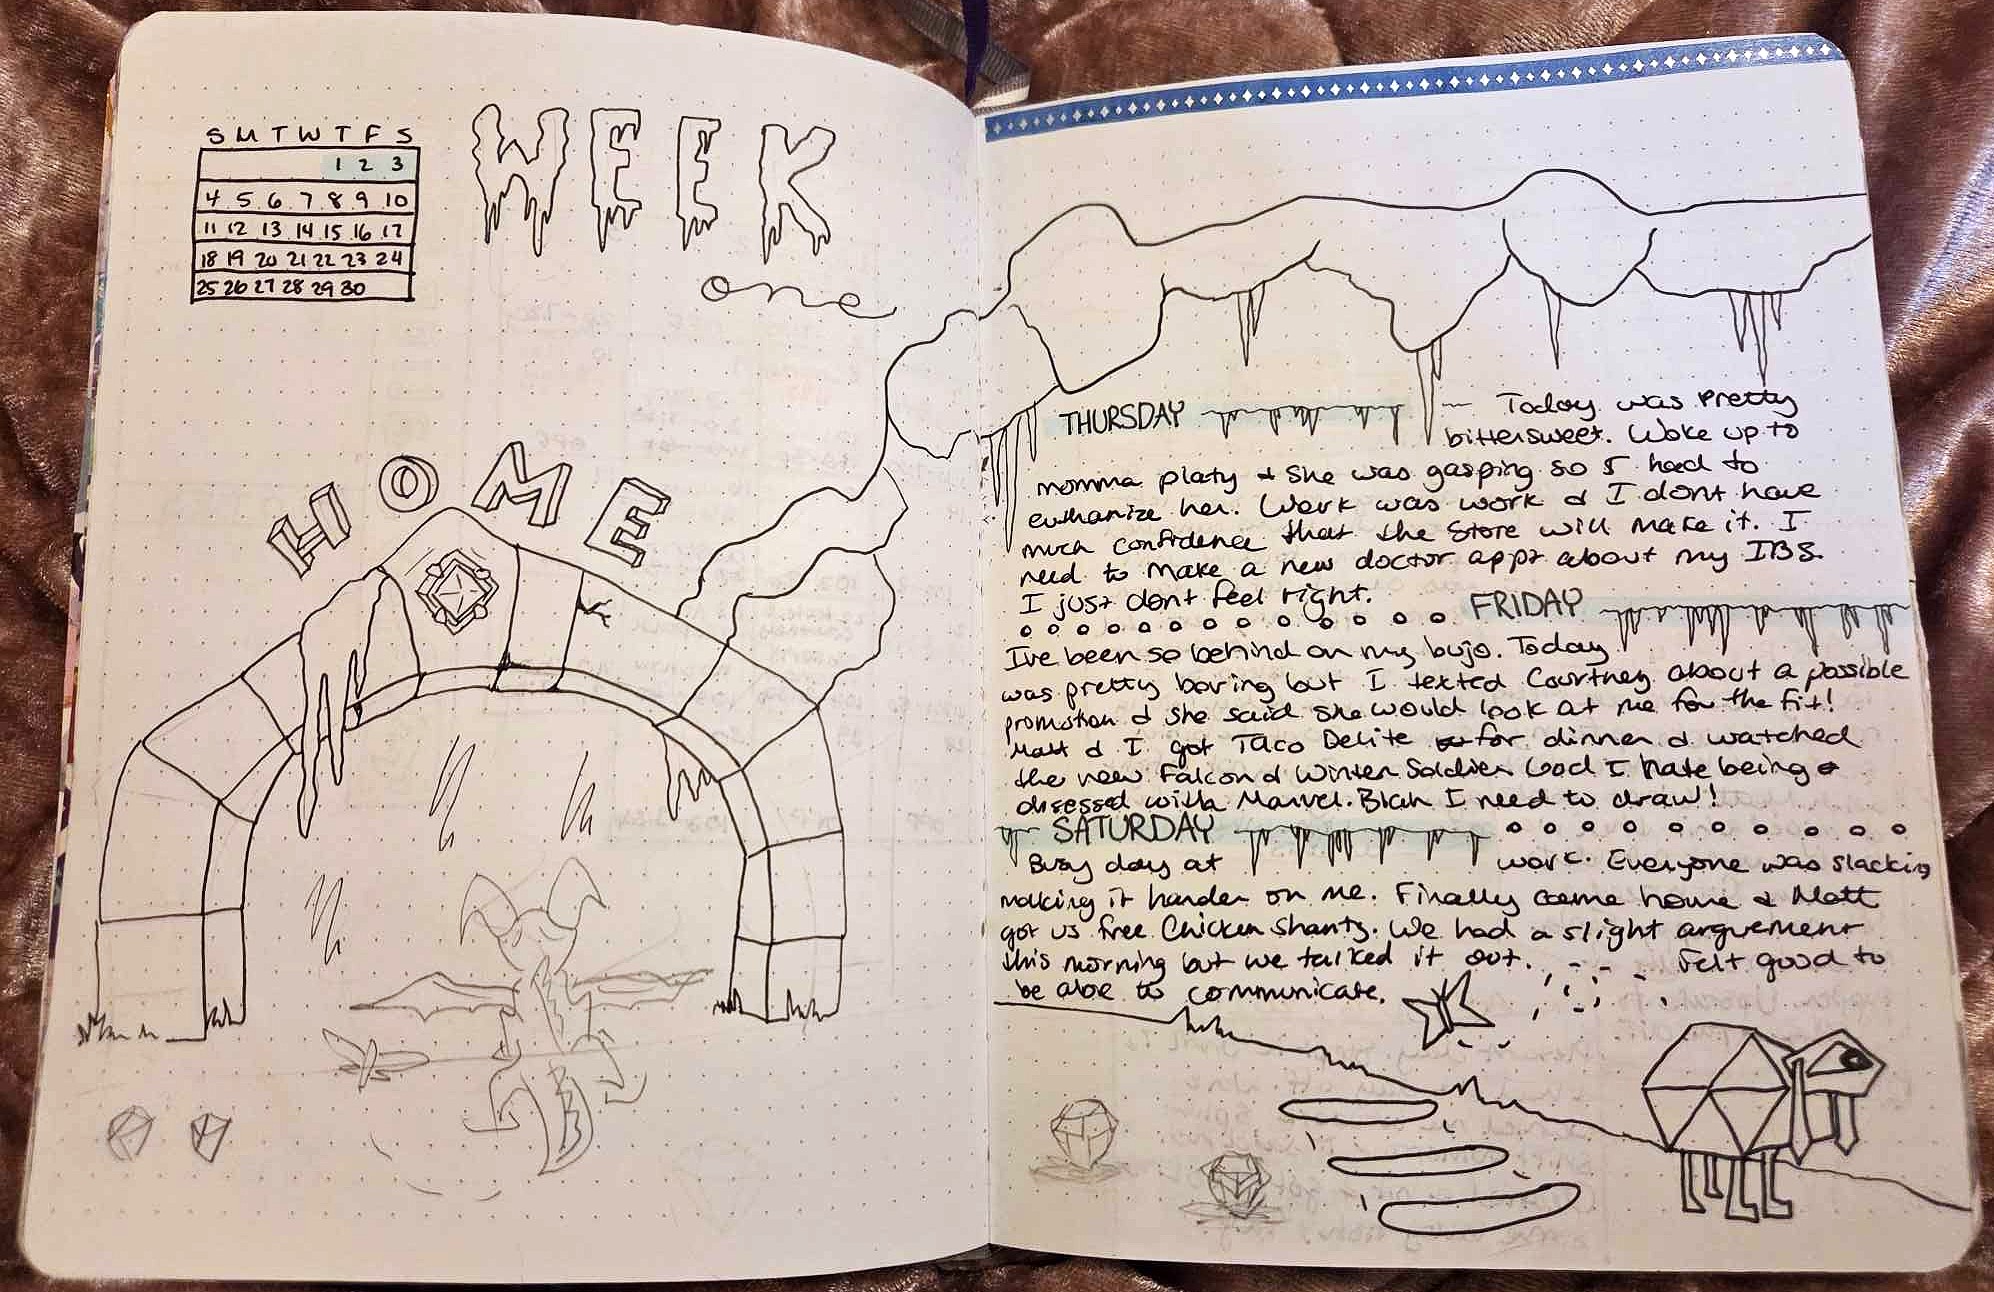 S M T W T F S
1 2 3
4 5 6 7 8 9 10
11 12 13 14 15 16 17
18 19 20 21 22 23 24
25 26 27 28 29 30
WEEK
one
HOME
THURSDAY
Today was pretty
bittersweet. Woke up to
momma platy & she was gasping so I had to
euthanize her. Work was work & I dont have
much confidence that the store will make it. I
need to make a new doctor appt about my IBS.
I just dont feel right.
FRIDAY
Ive been so behind on my bujo. Today
was pretty boring but I texted Courtney about a possible
promotion & she said she would look at me for the fit!
Matt & I got Taco Delite for dinner & watched
the new Falcon & Winter Soldier. God I hate being
obsessed with Marvel. Blah I need to draw!
SATURDAY
Busy day at work. Everyone was slacking
making it harder on me. Finally came home & Matt
got us free Chicken Shantz. We had a slight arguement
this morning but we talked it out. Felt good to
be able to communicate.